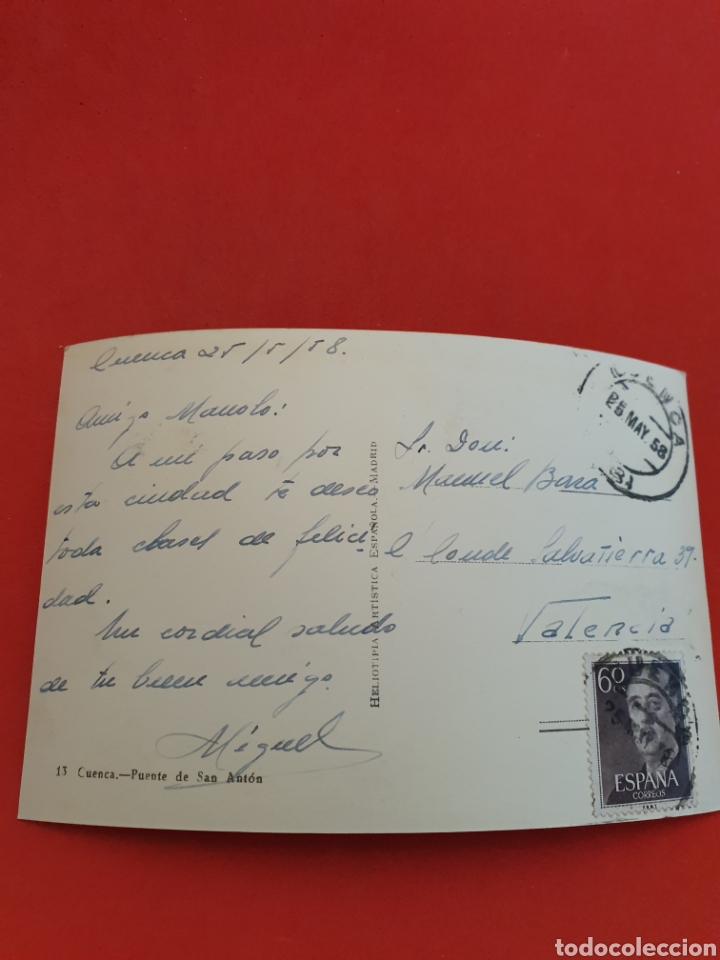 Cuenca 25/5/58.
Amigo Manolo:
A mi paso por
esta ciudad te deseo
toda clases de felici
dad.
Un cordial saludo
de tu buen amigo.
Miguel
13 Cuenca.—Puente de San Antón
HELIOTIPIA ARTÍSTICA ESPAÑOLA.-MADRID
Sr. Don:
Manuel Bara
C/ Conde Salvatierra 39-
Valencia
CUENCA
26 MAY. 58
60
ESPAÑA
CORREOS
todocoleccion